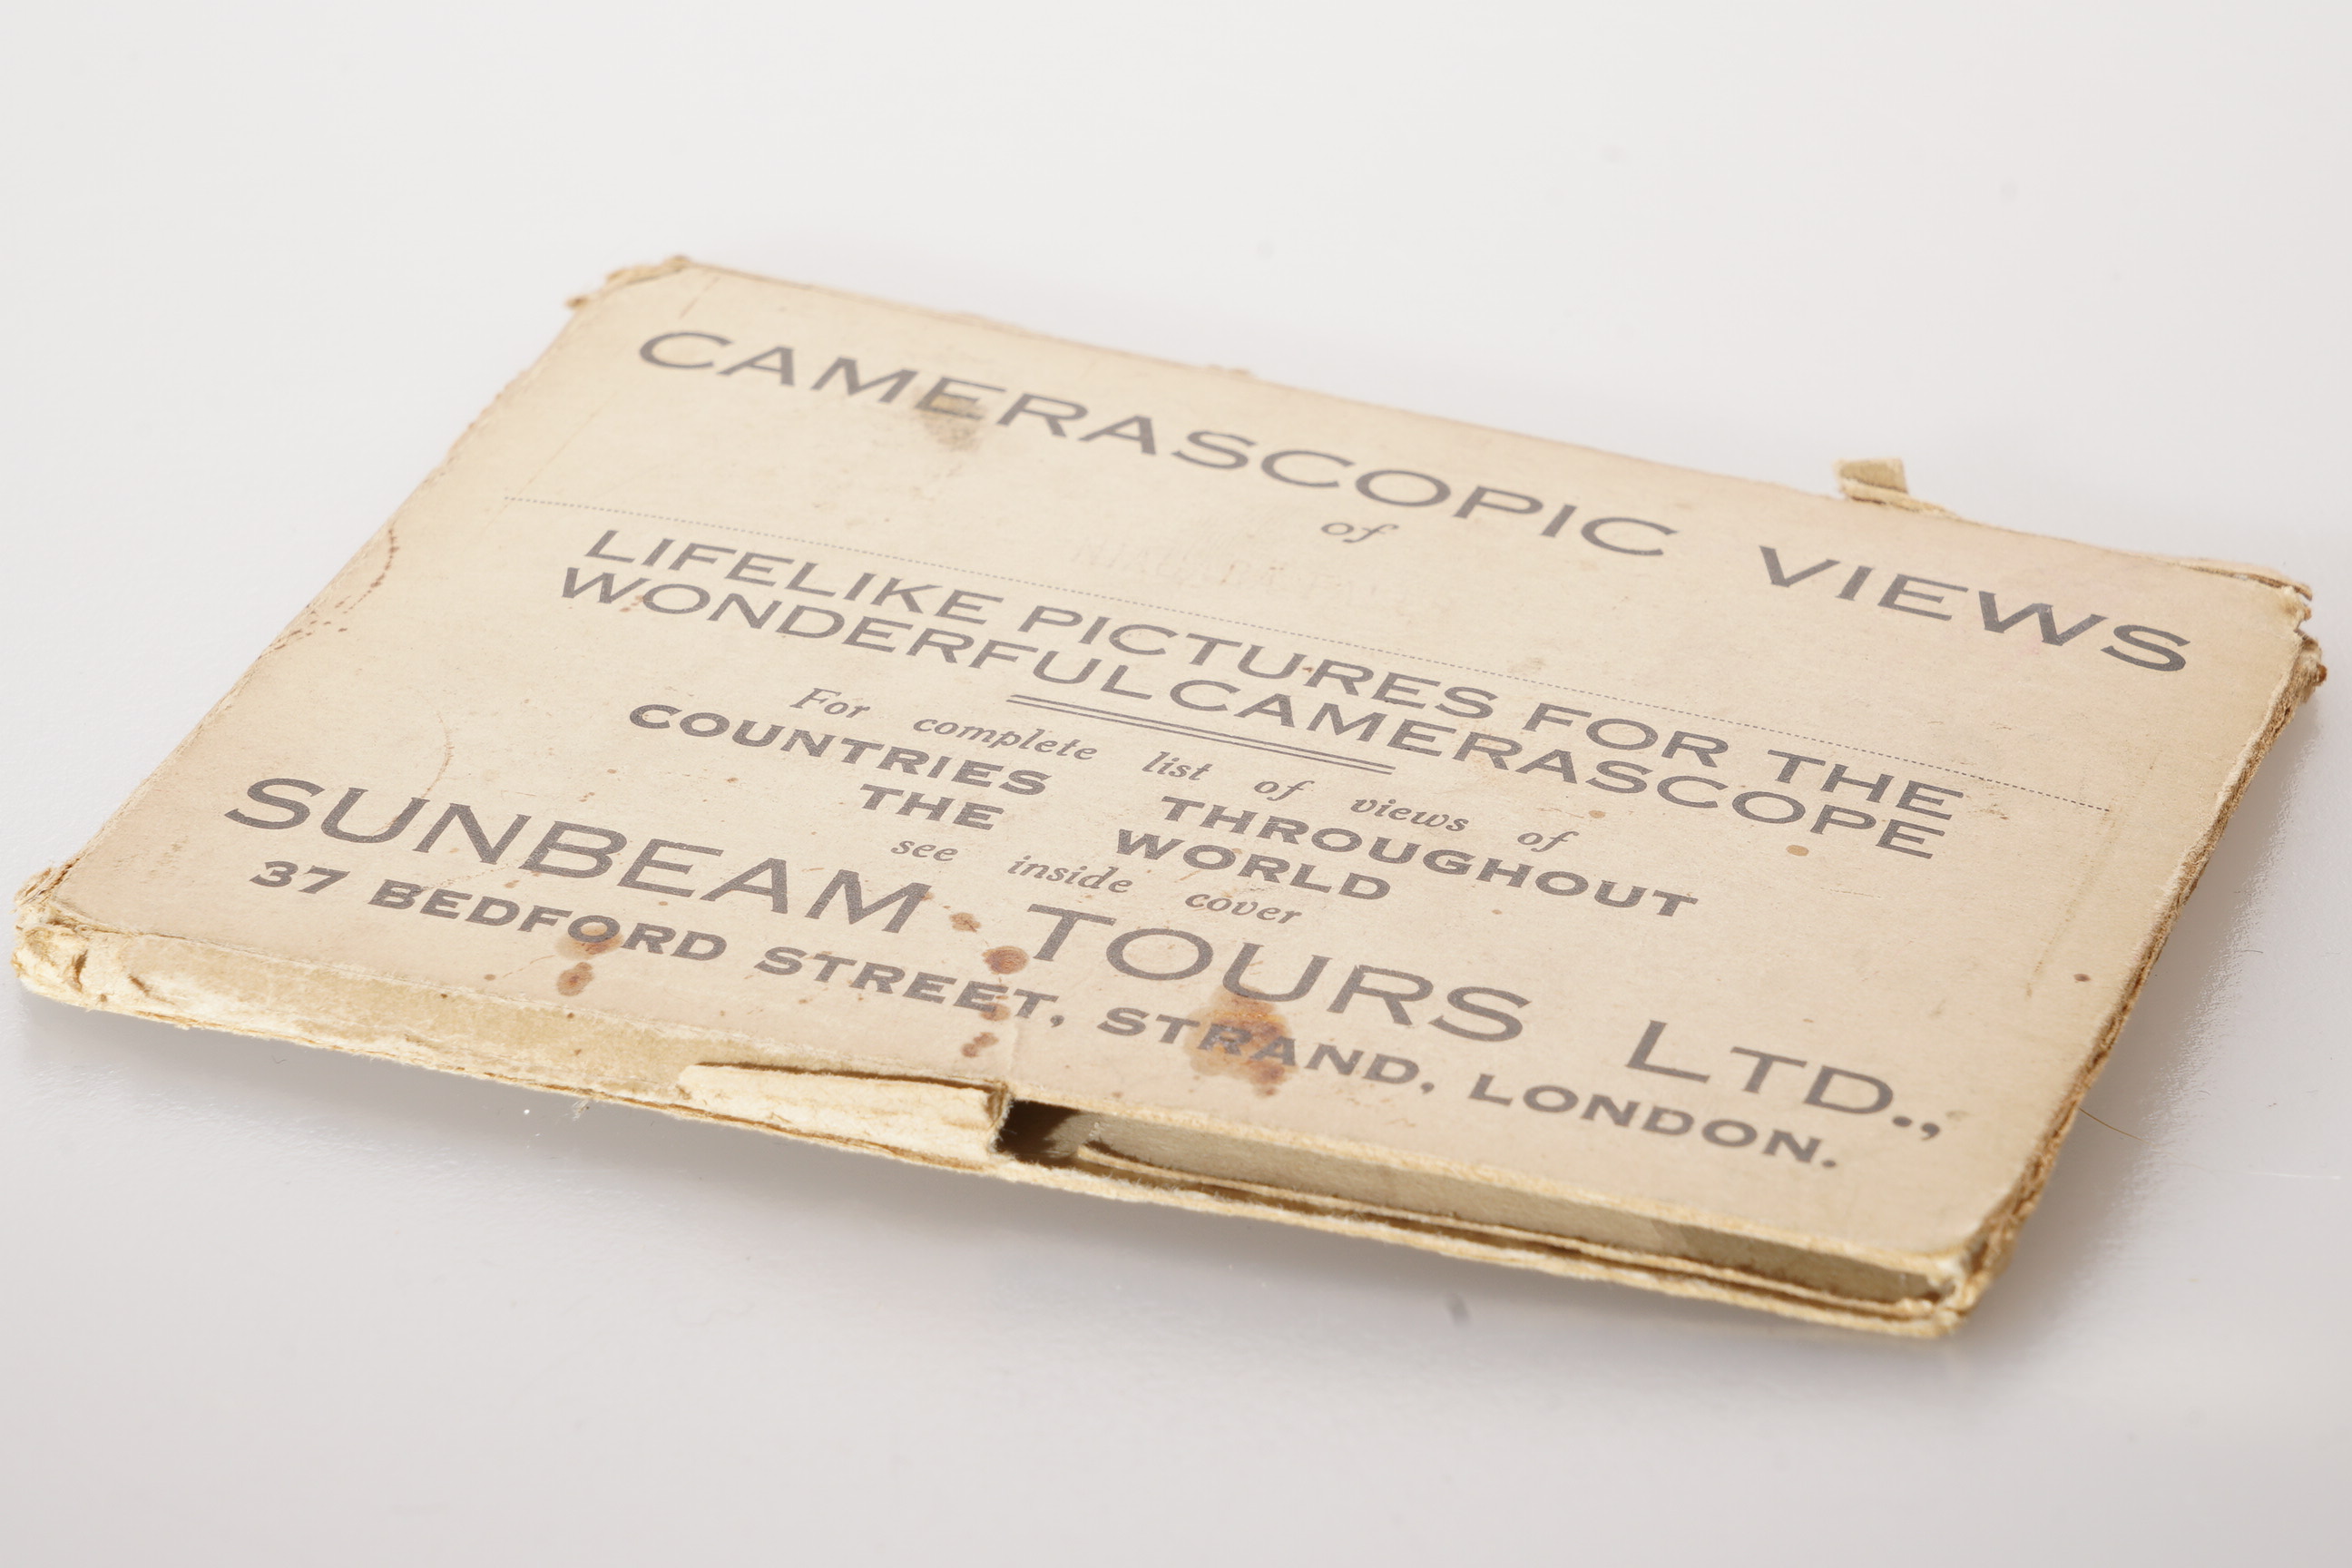 CAMERASCOPIC VIEWS
of
LIFELIKE PICTURES FOR THE
WONDERFUL CAMERASCOPE
For complete list of views of
COUNTRIES THROUGHOUT
THE WORLD
see inside cover
SUNBEAM TOURS LTD.,
37 BEDFORD STREET, STRAND, LONDON.